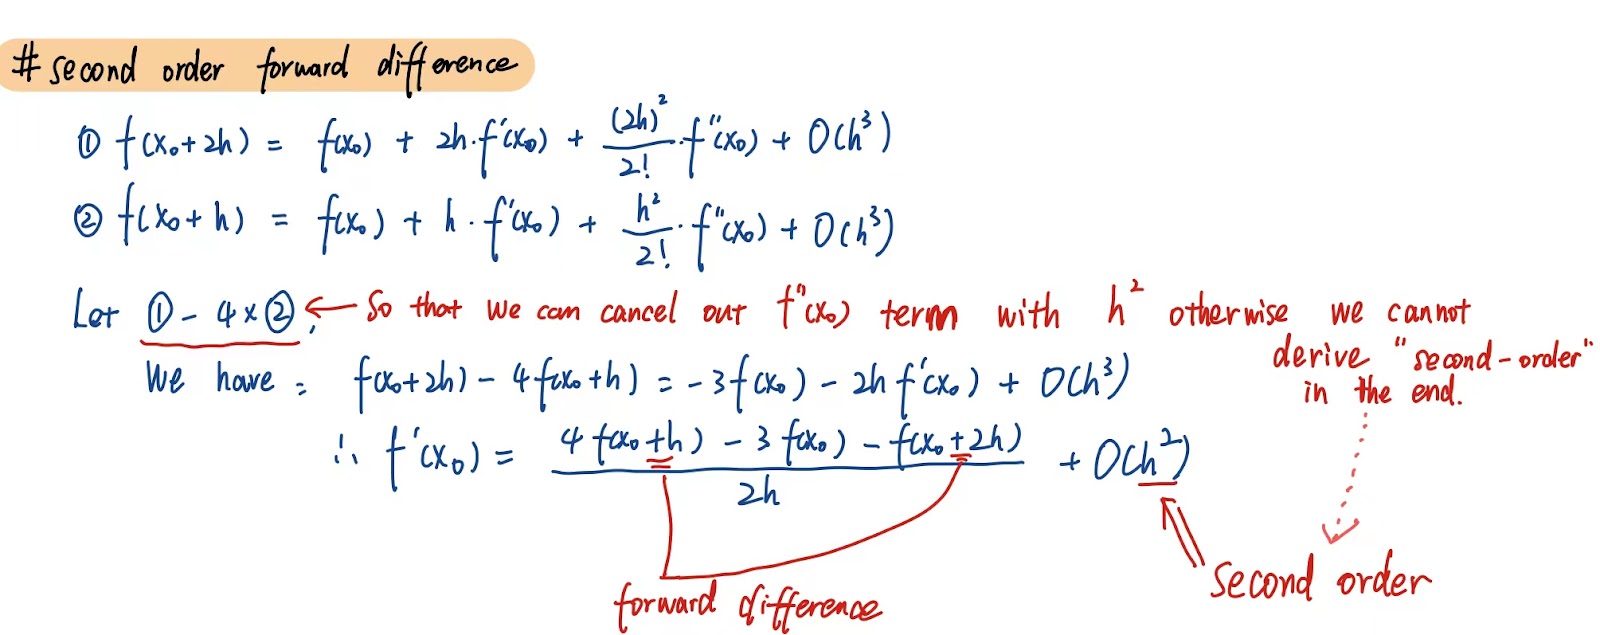 # second order forward difference
① f(x₀+2h) = f(x₀) + 2h·f'(x₀) + (2h)²/2! · f''(x₀) + O(h³)
② f(x₀+h) = f(x₀) + h·f'(x₀) + h²/2! · f''(x₀) + O(h³)
Let ① - 4×②, ← So that we can cancel out f''(x₀) term with h² otherwise we cannot
derive "second-order"
in the end.
We have: f(x₀+2h) - 4f(x₀+h) = -3f(x₀) - 2hf'(x₀) + O(h³)
∴ f'(x₀) = (4f(x₀+h) - 3f(x₀) - f(x₀+2h))/2h + O(h²)
forward difference
Second order